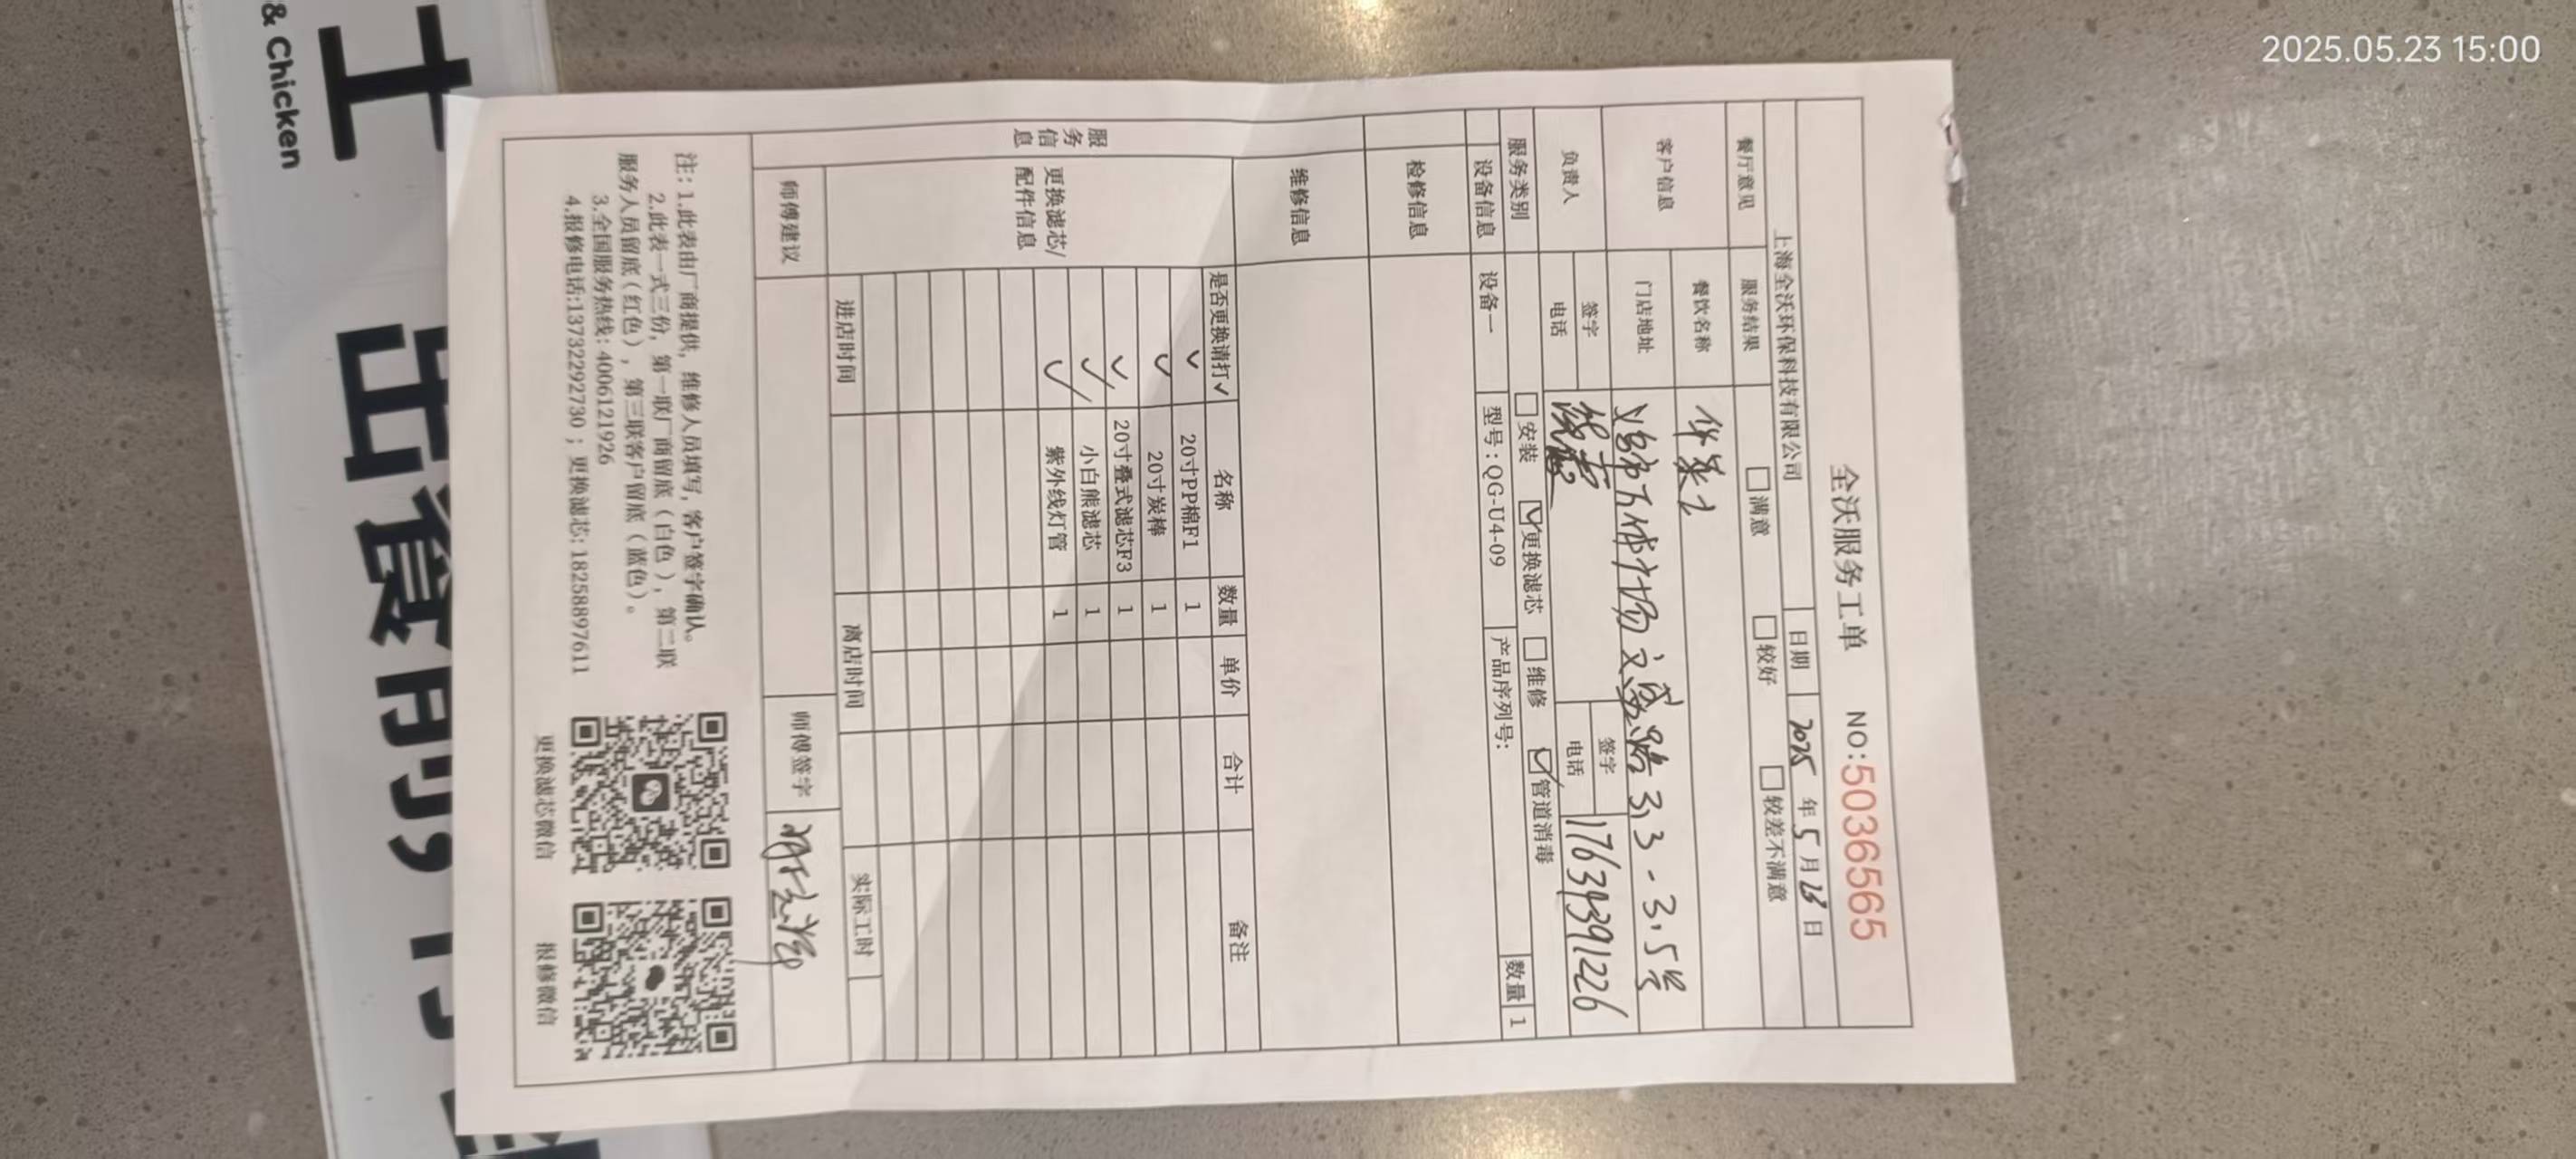 2025.05.23 15:00
& Chicken
士
出餐
全沃服务工单 NO:5036565
上海全沃环保科技有限公司 日期 2025 年 5 月 23 日
餐厅意见 服务结果 满意 较好 较差不满意
客户信息 餐饮名称 华莱士
门店地址 3.3-3.5号
负责人 签字 签字
电话 电话 17639391226
服务类别 安装 更换滤芯 维修 管道消毒
设备信息 设备一 型号：QG-U4-09 产品序列号： 数量 1
检修信息
维修信息
服务信息
更换滤芯/配件信息
是否更换请打✓ 名称 数量 单价 合计 备注
✓ 20寸PP棉F1 1
✓ 20寸炭棒 1
✓ 20寸叠式滤芯F3 1
✓ 小白熊滤芯 1
✓ 紫外线灯管 1
进店时间 离店时间 实际工时
师傅建议 师傅签字
注：1.此表由厂商提供，维修人员填写，客户签字确认。
2.此表一式三份，第一联厂商留底（白色），第二联
服务人员留底（红色），第三联客户留底（蓝色）。
3.全国服务热线：4006121926
4.报修电话:13732292730；更换滤芯：18258897611
更换滤芯微信 报修微信